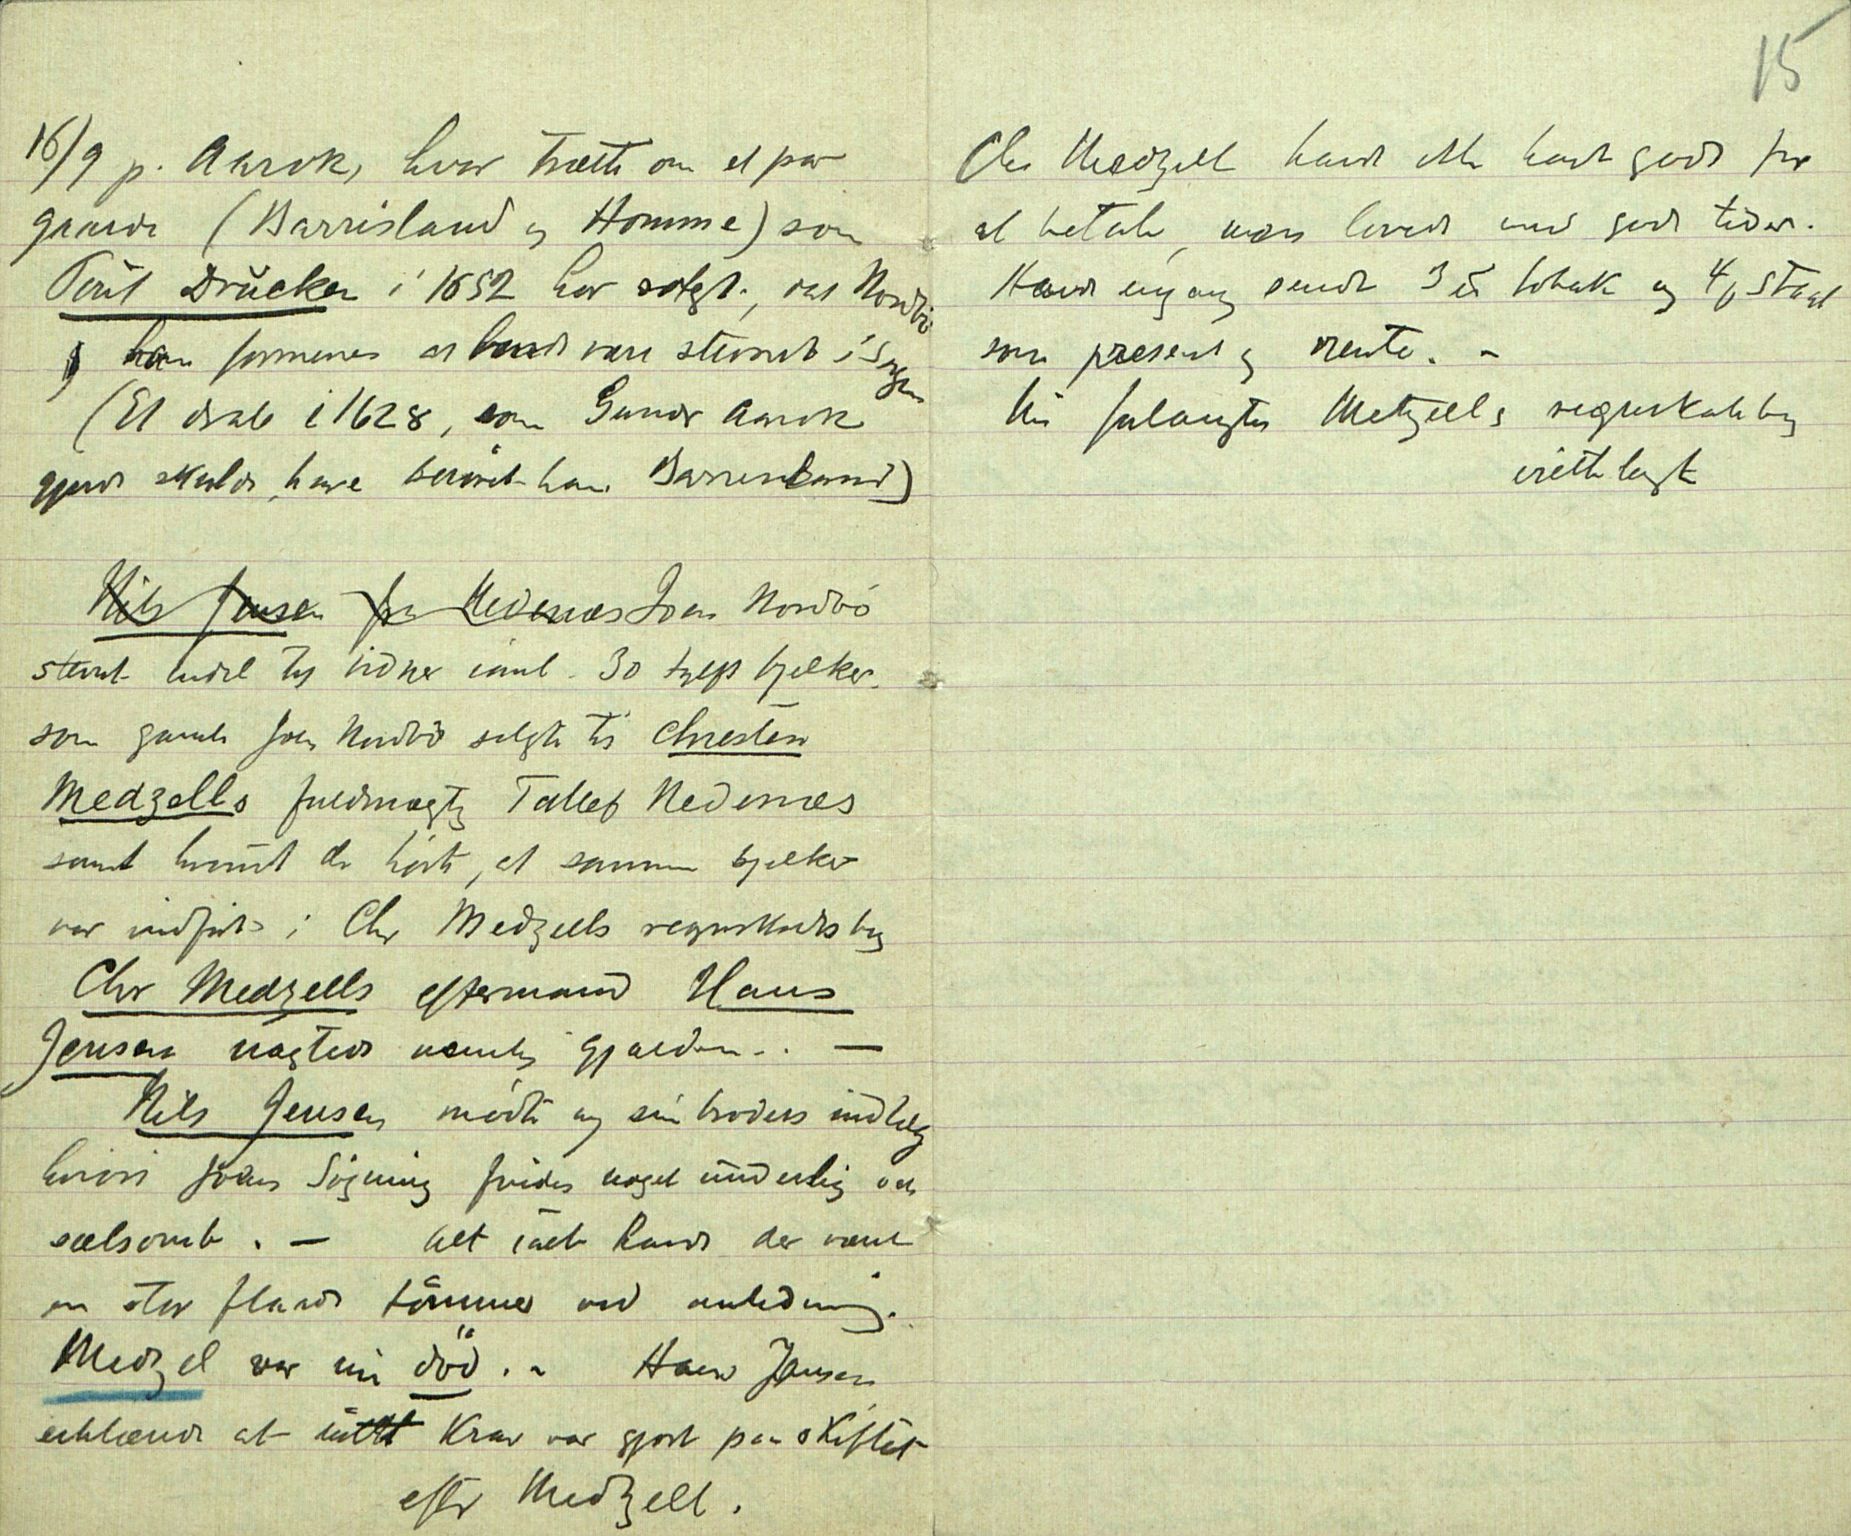 16/9 p. Aarok, hvor trætte om et par
gaarde (Barrisland og Homme) som
Poul Drücken i 1652 har solgt,
han formenes at burde være stevnet i sagen
(Et drab i 1628, som Gunder Aarok
gjorde skulde have berövet ham Barrisland)
Nils Jensen fra Nedenæs Joen Nordbö
stevnt endel til vidner 30 tylft bjelker
som gamle Joen Nordbö solgte til Chresten
Medzells fuldmægtig Tallef Nedenæs
samt hvorvidt de hörte, at samme bjelker
var indfört i Chr Medzells regnskabsbog
Chr Medzells eftermand Hans
Jensen nægtede nemlig gjælden.. —
Nils Jensen mödte og sin broders indlæg
hvori Joens Sögning findes noget underlig och
sælsomt. — Alt hand der været
en stor flaade tömmer ved anledning.
Medzel var nu död. - Hans Jensen
erklærede at intet krav var gjort paa skiftet
efter Medzell.
15
Chr Medzell havde ikke havt gods for
at betale, men lovede med gode tider.
Havde engang sendt 3 ℔ tobak og 4 ℔ Staal
som present og rente. -
Nu forlangtes Metzells regnskabsbog
irettelagt